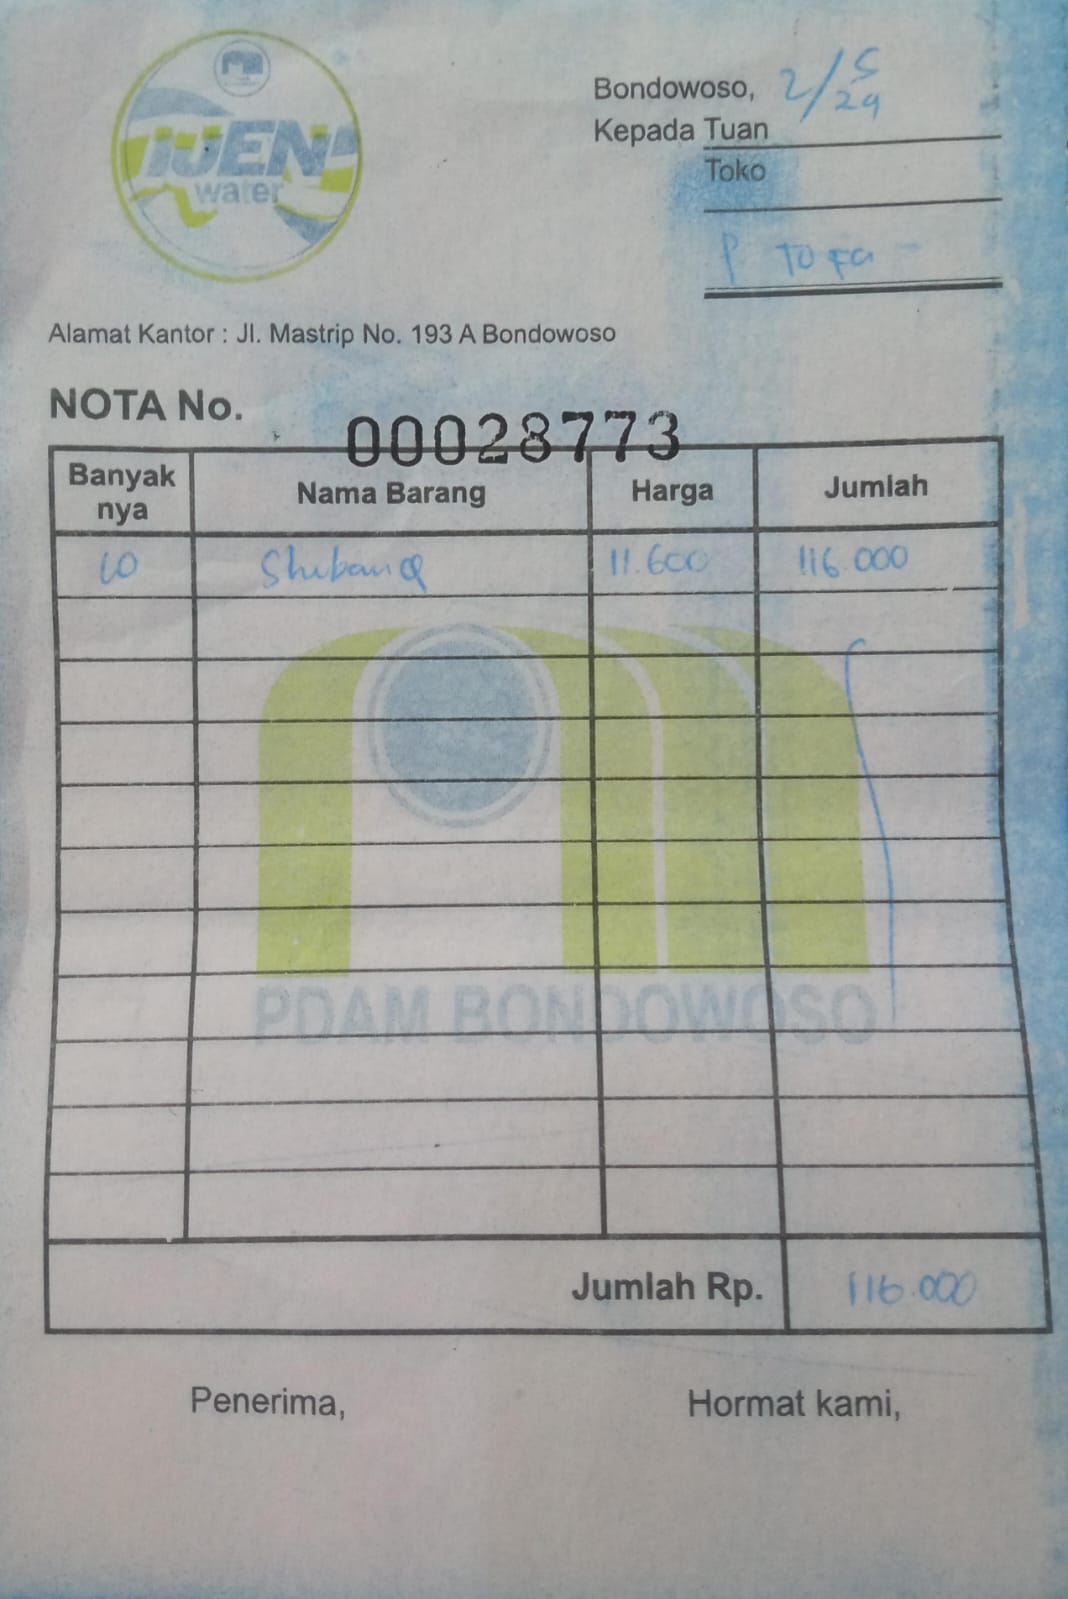 IJEN
water
Bondowoso, 2/5/24
Kepada Tuan
Toko
P Tofa
Alamat Kantor : Jl. Mastrip No. 193 A Bondowoso
NOTA No. 00028773
Banyak nya Nama Barang Harga Jumlah
10 ShubanQ 11.600 116.000
PDAM BONDOWOSO
Jumlah Rp. 116.000
Penerima, Hormat kami,